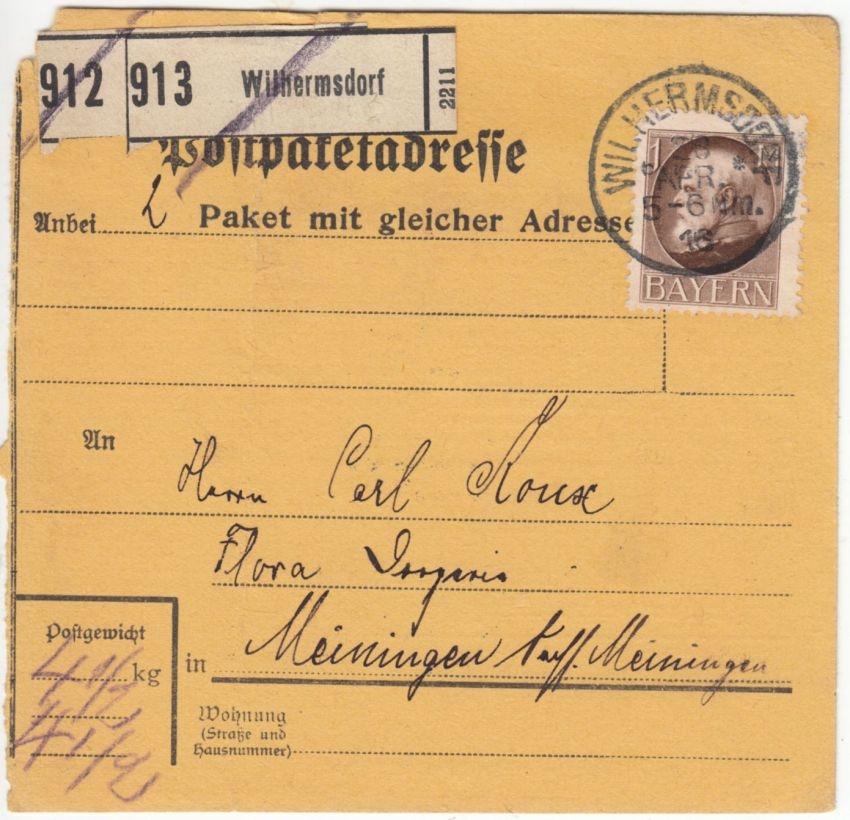 912 913 Wilhermsdorf 2211
Postpaketadresse
WILHERMSDORF
28 APR.
5-6 Nm.
16
1 M
BAYERN
Anbei 2 Paket mit gleicher Adresse
An
Herrn Carl Roux
Flora Drogerie
in Meiningen Sachs. Meiningen
Postgewicht
4 1/2 kg
4 1/2
Wohnung
(Straße und
Hausnummer)